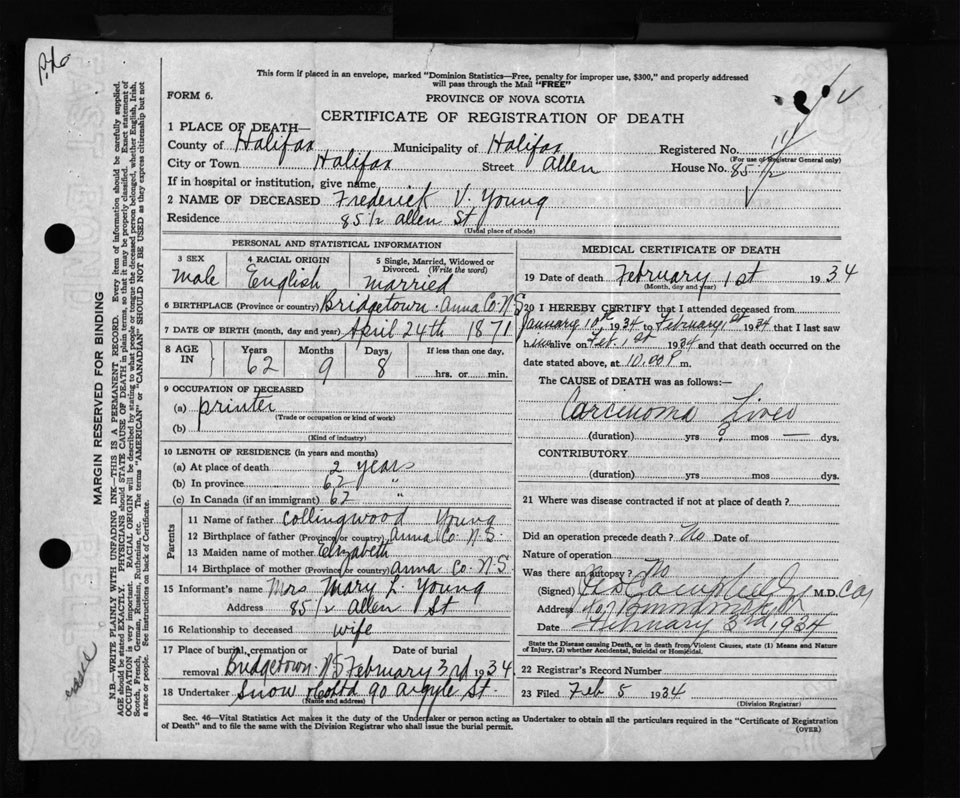 This form if placed in an envelope, marked "Dominion Statistics—Free, penalty for improper use, $300," and properly addressed
will pass through the Mail "FREE"
FORM 6.
PROVINCE OF NOVA SCOTIA
CERTIFICATE OF REGISTRATION OF DEATH
1 PLACE OF DEATH—
County of Halifax Municipality of Halifax Registered No.
(For use of Registrar General only)
City or Town Halifax Street Allen House No. 85 1/2
If in hospital or institution, give name
2 NAME OF DECEASED Frederick V. Young
Residence 85 1/2 allen St
(Usual place of abode)
PERSONAL AND STATISTICAL INFORMATION
3 SEX 4 RACIAL ORIGIN 5 Single, Married, Widowed or Divorced. (Write the word)
Male English Married
6 BIRTHPLACE (Province or country) Bridgetown. Anna Co. N.S
7 DATE OF BIRTH (month, day and year) April 24th 1871
8 AGE IN Years Months Days If less than one day,
62 9 8 hrs. or min.
9 OCCUPATION OF DECEASED
(a) printer
(Trade or occupation or kind of work)
(b)
(Kind of industry)
10 LENGTH OF RESIDENCE (in years and months)
(a) At place of death 2 years
(b) In province 62 "
(c) In Canada (if an immigrant) 62 "
Parents
11 Name of father Collingwood Young
12 Birthplace of father (Province or country) Anna Co. N.S.
13 Maiden name of mother Elizabeth
14 Birthplace of mother (Province or country) anna Co. N.S
15 Informant's name Mrs Mary L Young
Address 85 1/2 allen St
16 Relationship to deceased wife
17 Place of burial, cremation or removal Date of burial
Bridgetown. NS February 3rd 1934
18 Undertaker Snow & Co Ltd 90 Argyle St.
(Name and address)
MEDICAL CERTIFICATE OF DEATH
19 Date of death February 1st 1934
(Month, day and year)
20 I HEREBY CERTIFY that I attended deceased from
January 10th 1934 to February 1st 1934 that I last saw
him alive on Feb. 1st 1934 and that death occurred on the
date stated above, at 10.00 P m.
The CAUSE OF DEATH was as follows:—
Carcinoma Liver
(duration) yrs ? mos — dys.
CONTRIBUTORY
(duration) yrs mos dys.
21 Where was disease contracted if not at place of death?
Did an operation precede death? No Date of
Nature of operation
Was there an autopsy? No
(Signed) Campbell M.D.
Address
Date February 3rd 1934
State the Disease causing Death, or in death from Violent Causes, state (1) Means and Nature
of Injury, (2) whether Accidental, Suicidal or Homicidal.
22 Registrar's Record Number
23 Filed Feb 5 1934
(Division Registrar)
Sec. 46—Vital Statistics Act makes it the duty of the Undertaker or person acting as Undertaker to obtain all the particulars required in the "Certificate of Registration
of Death" and to file the same with the Division Registrar who shall issue the burial permit.
(OVER)
MARGIN RESERVED FOR BINDING
N.B.—WRITE PLAINLY WITH UNFADING INK—THIS IS A PERMANENT RECORD. Every item of information should be carefully supplied.
AGE should be stated EXACTLY. PHYSICIANS should STATE CAUSE OF DEATH in plain terms, so that it may be properly classified. Exact statement of
OCCUPATION is very important. RACIAL ORIGIN will be described by stating to what people or tongue the deceased person belonged, whether English, Irish,
Scotch, French, German, Russian, Ruthenian, etc. The terms "AMERICAN" or "CANADIAN" SHOULD NOT BE USED as they express citizenship but not
a race or people. See instructions on back of Certificate.